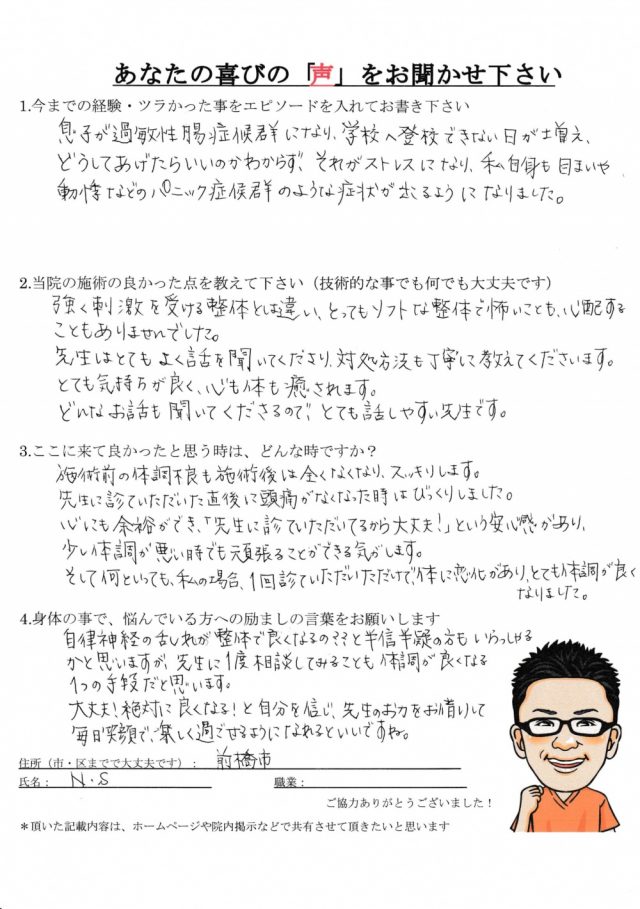 あなたの喜びの「声」をお聞かせ下さい
1.今までの経験・ツラかった事をエピソードを入れてお書き下さい
息子が過敏性腸症候群になり、学校へ登校できない日が増え、
どうしてあげたらいいのかわからず、それがストレスになり、私自身も目まいや
動悸などのパニック症候群のような症状が出るようになりました。
2.当院の施術の良かった点を教えて下さい（技術的な事でも何でも大丈夫です）
強く刺激を受ける整体とは違い、とってもソフトな整体で怖いことも、心配する
こともありませんでした。
先生はとてもよく話を聞いてくださり、対処方法も丁寧に教えてくださいます。
とても気持ちが良く、心も体も癒されます。
どんなお話も聞いてくださるので、とても話しやすい先生です。
3.ここに来て良かったと思う時は、どんな時ですか？
施術前の体調不良も施術後は全くなくなり、スッキリします。
先生に診ていただいた直後に頭痛がなくなった時はびっくりしました。
心にも余裕ができ、「先生に診ていただいてるから大丈夫！」という安心感があり、
少し体調が悪い時でも頑張ることができる気がします。
そして何といっても、私の場合、1回診ていただいただけで体に変化があり、とても体調が良く
なりました。
4.身体の事で、悩んでいる方への励ましの言葉をお願いします
自律神経の乱れが整体で良くなるの??と半信半疑の方もいらっしゃる
かと思いますが、先生に1度相談してみることも体調が良くなる
1つの手段だと思います。
大丈夫！絶対に良くなる！と自分を信じ、先生のお力をお借りして
毎日笑顔で、楽しく過ごせるようになれるといいですね。
住所（市・区までで大丈夫です）： 前橋市
氏名： N・S 職業：
ご協力ありがとうございました！
＊頂いた記載内容は、ホームページや院内掲示などで共有させて頂きたいと思います